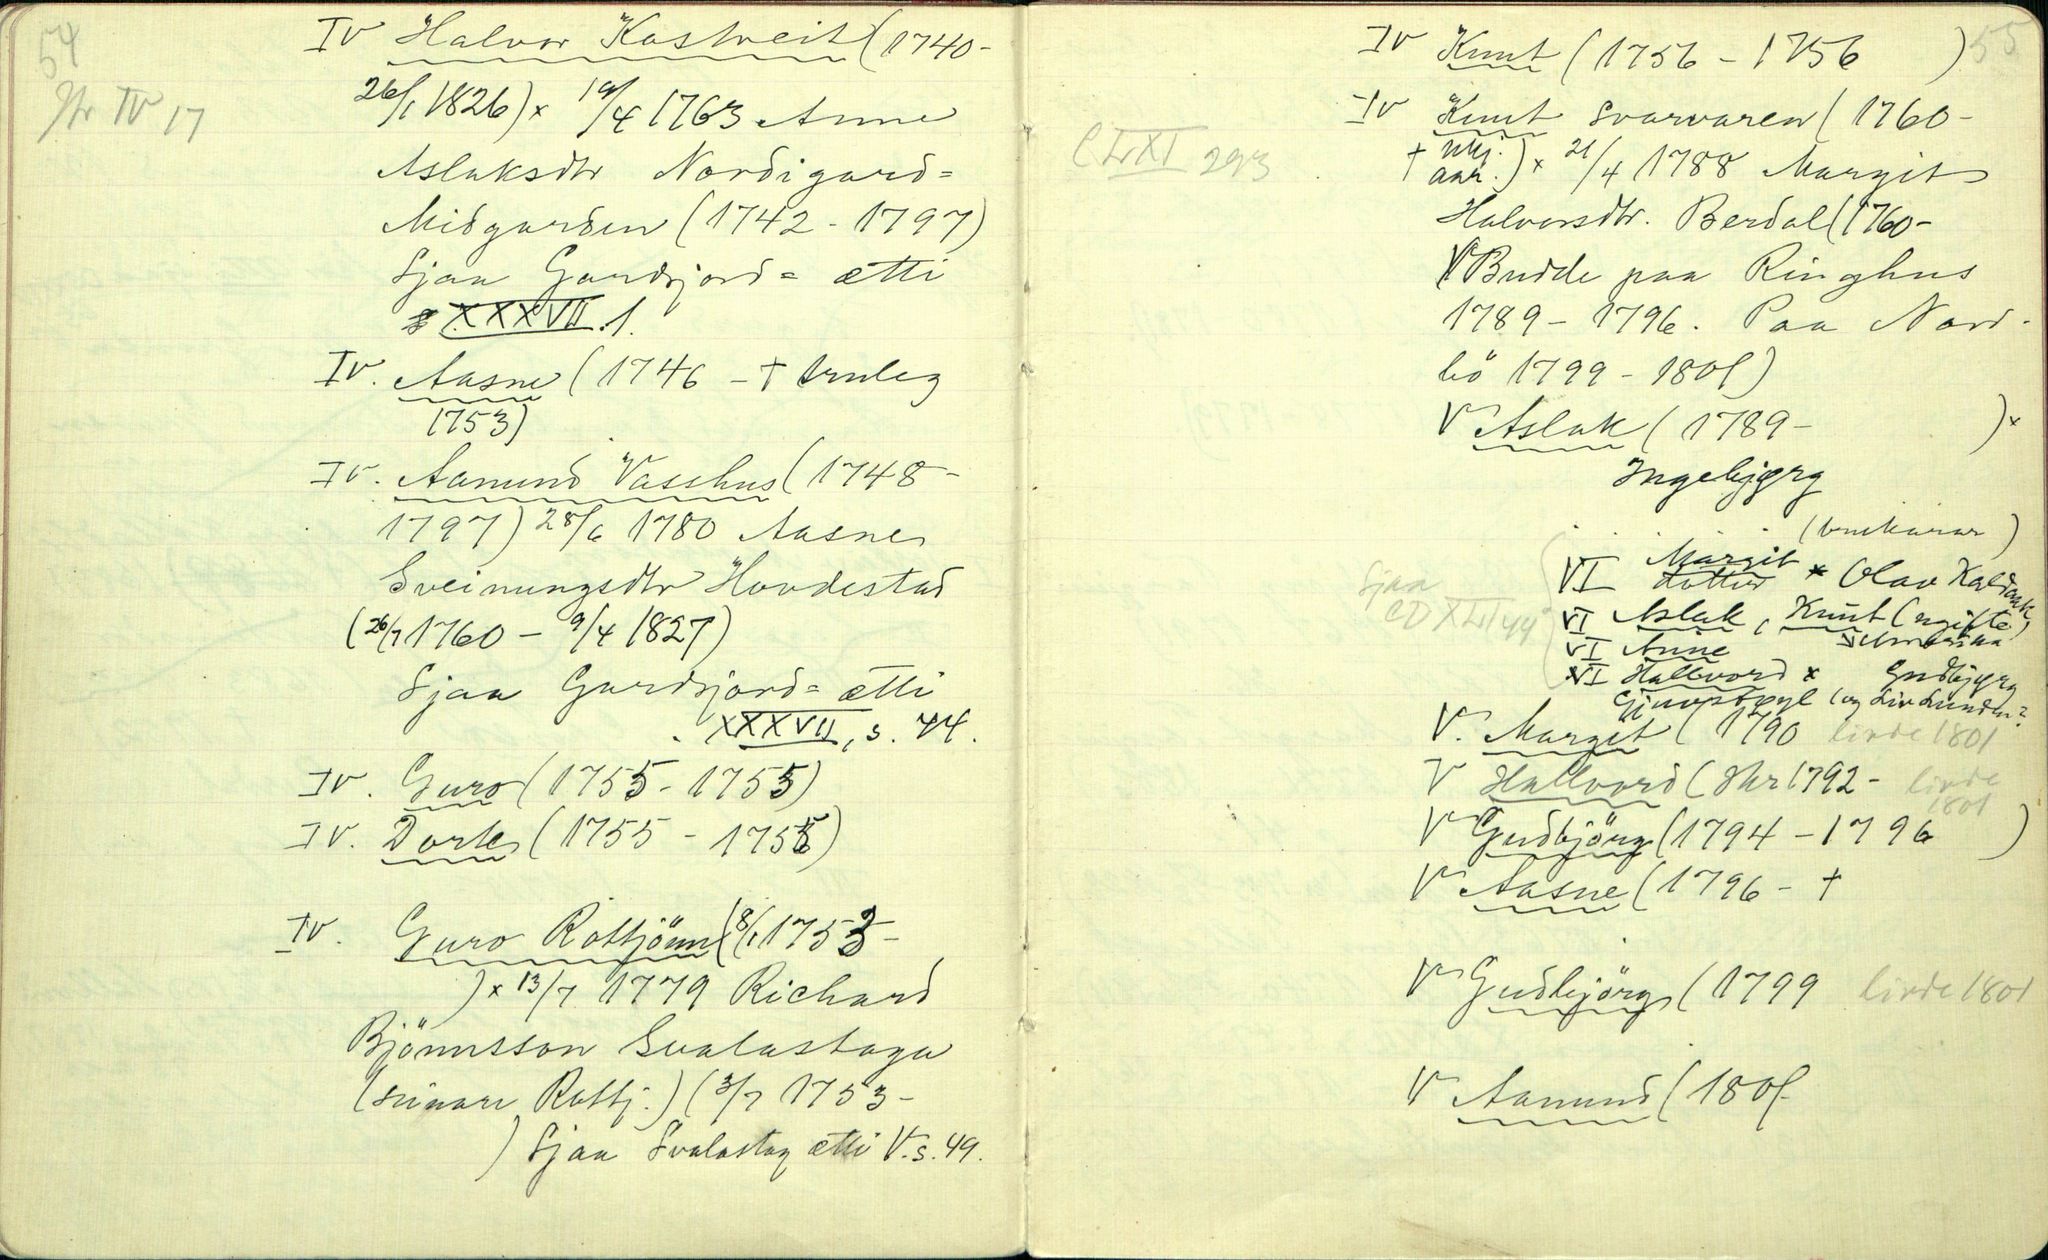 54
IV Halvor Kostveit (1740-
26/1 1826) × 19/4 1763 Anne
Aslaksdtr Nordigard=
Midgarden (1742 - 1797)
Sjaa Gardsjord= ætti
XXXVII.1.
IV. Aasne (1746 - † truleg
1753)
IV. Aamund Vasshus (1748-
1797) 28/6 1780 Aasne
Sveinungsdtr Hovdestad
(26/7 1760 - 9/4 1827)
Sjaa Gardsjord= ætti
XXXVII, s. 44.
IV. Guro (1755 - 1755)
IV. Dorte (1755 - 1755)
IV. Guro Rottjönn (8/1 1753-
) × 13/7 1779 Richard
Bjönnsson Svalastoga
(seinare Rottj.) (3/7 1753-
) Sjaa Svalastog ætti V. s. 49.
55
IV Knut (1756 - 1756 )
IV Knut Svarvaren (1760-
† ukj. aar.) × 21/4 1788 Margit
Halvorsdtr. Berdal (1760-
(Budde paa Ringhus
1789 - 1796. Paa Nord-
bö 1799 - 1801)
V Aslak (1789- ) ×
Ingebjørg
VI Margit × Olav
VI Aslak, Knut (ugifte)
VI Anne
VI Hallvord × Gudbjørg
V. Margit (1790 livde 1801
V Hallvord (1792 - livde
1801
V Gudbjörg (1794 - 1796 )
V Aasne (1796 - †
V Gudbjörg (1799 livde 1801
V Aamund (1801-